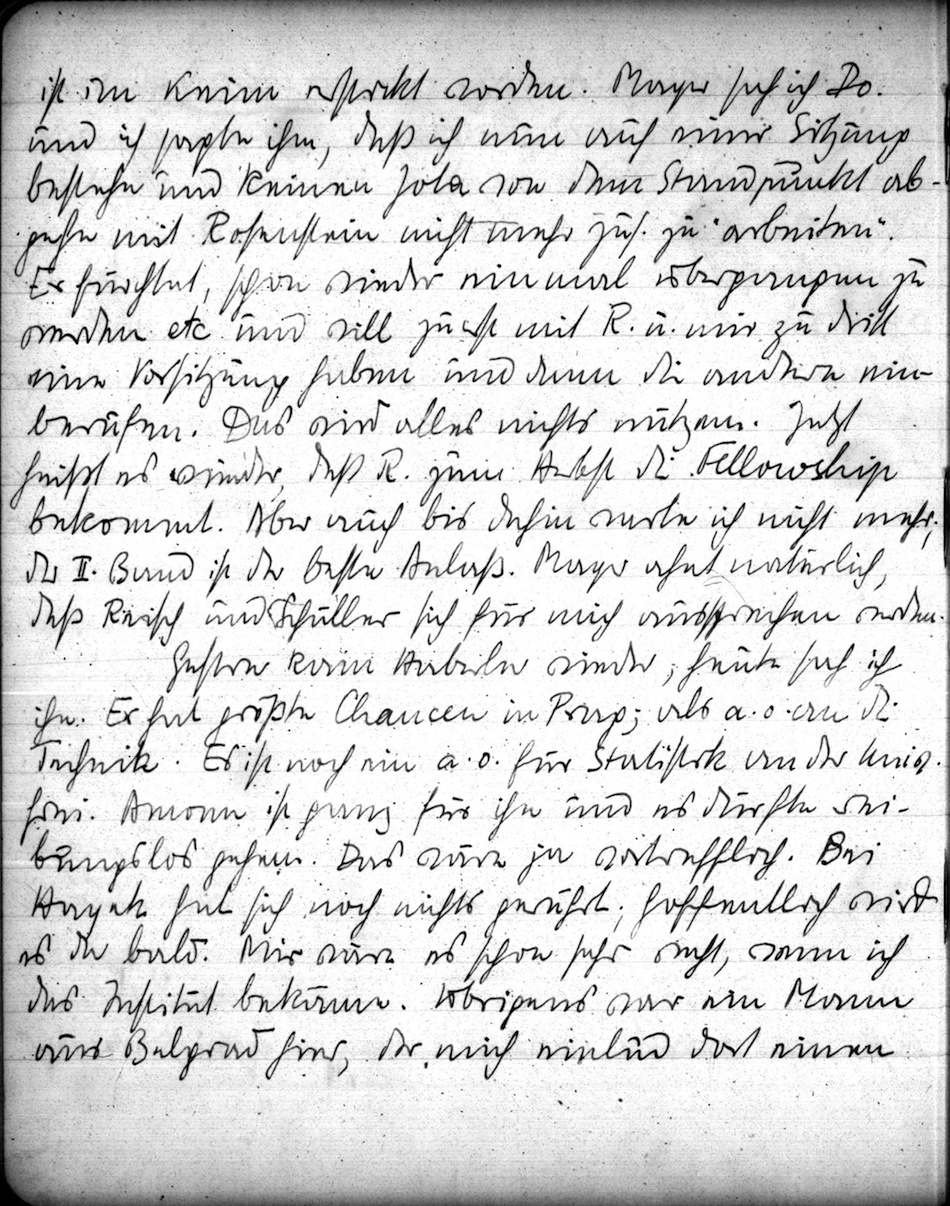 ist im Keim erstickt worden. Mayer sah ich Do.
und ich sagte ihm, daß ich nun auf einer Sitzung
bestehe und keinen Jota von dem Standpunkt ab-
gehe mit Rosenstein nicht mehr zus. zu "arbeiten".
Er fürchtet, schon wieder einmal übergangen zu
werden etc und will zuerst mit R. u. mir zu dritt
eine Vorsitzung haben und dann die andern ein-
berufen. Das wird alles nichts nützen. Jetzt
heißt es wieder, daß R. zum Herbst die Fellowship
bekommt. Aber auch bis dahin warte ich nicht mehr;
der II. Band ist der beste Anlaß. Mayer ahnt natürlich,
daß Reisch und Schüller sich für mich aussprechen werden.
Gestern kam Haberler wieder, heute sah ich
ihn. Er hat größte Chancen in Prag; als a.o. an die
Technik. Es ist noch ein a.o. für Statistik an der Univ.
frei. Amonn ist ganz für ihn und es dürfte rei-
bungslos gehen. Das wäre ja vortrefflich. Bei
Hayek hat sich noch nichts gerührt; hoffentlich wird
es da bald. Mir wäre es schon sehr recht, wenn ich
das Institut bekäme. Übrigens war ein Mann
aus Belgrad hier, der mich einlud dort einen